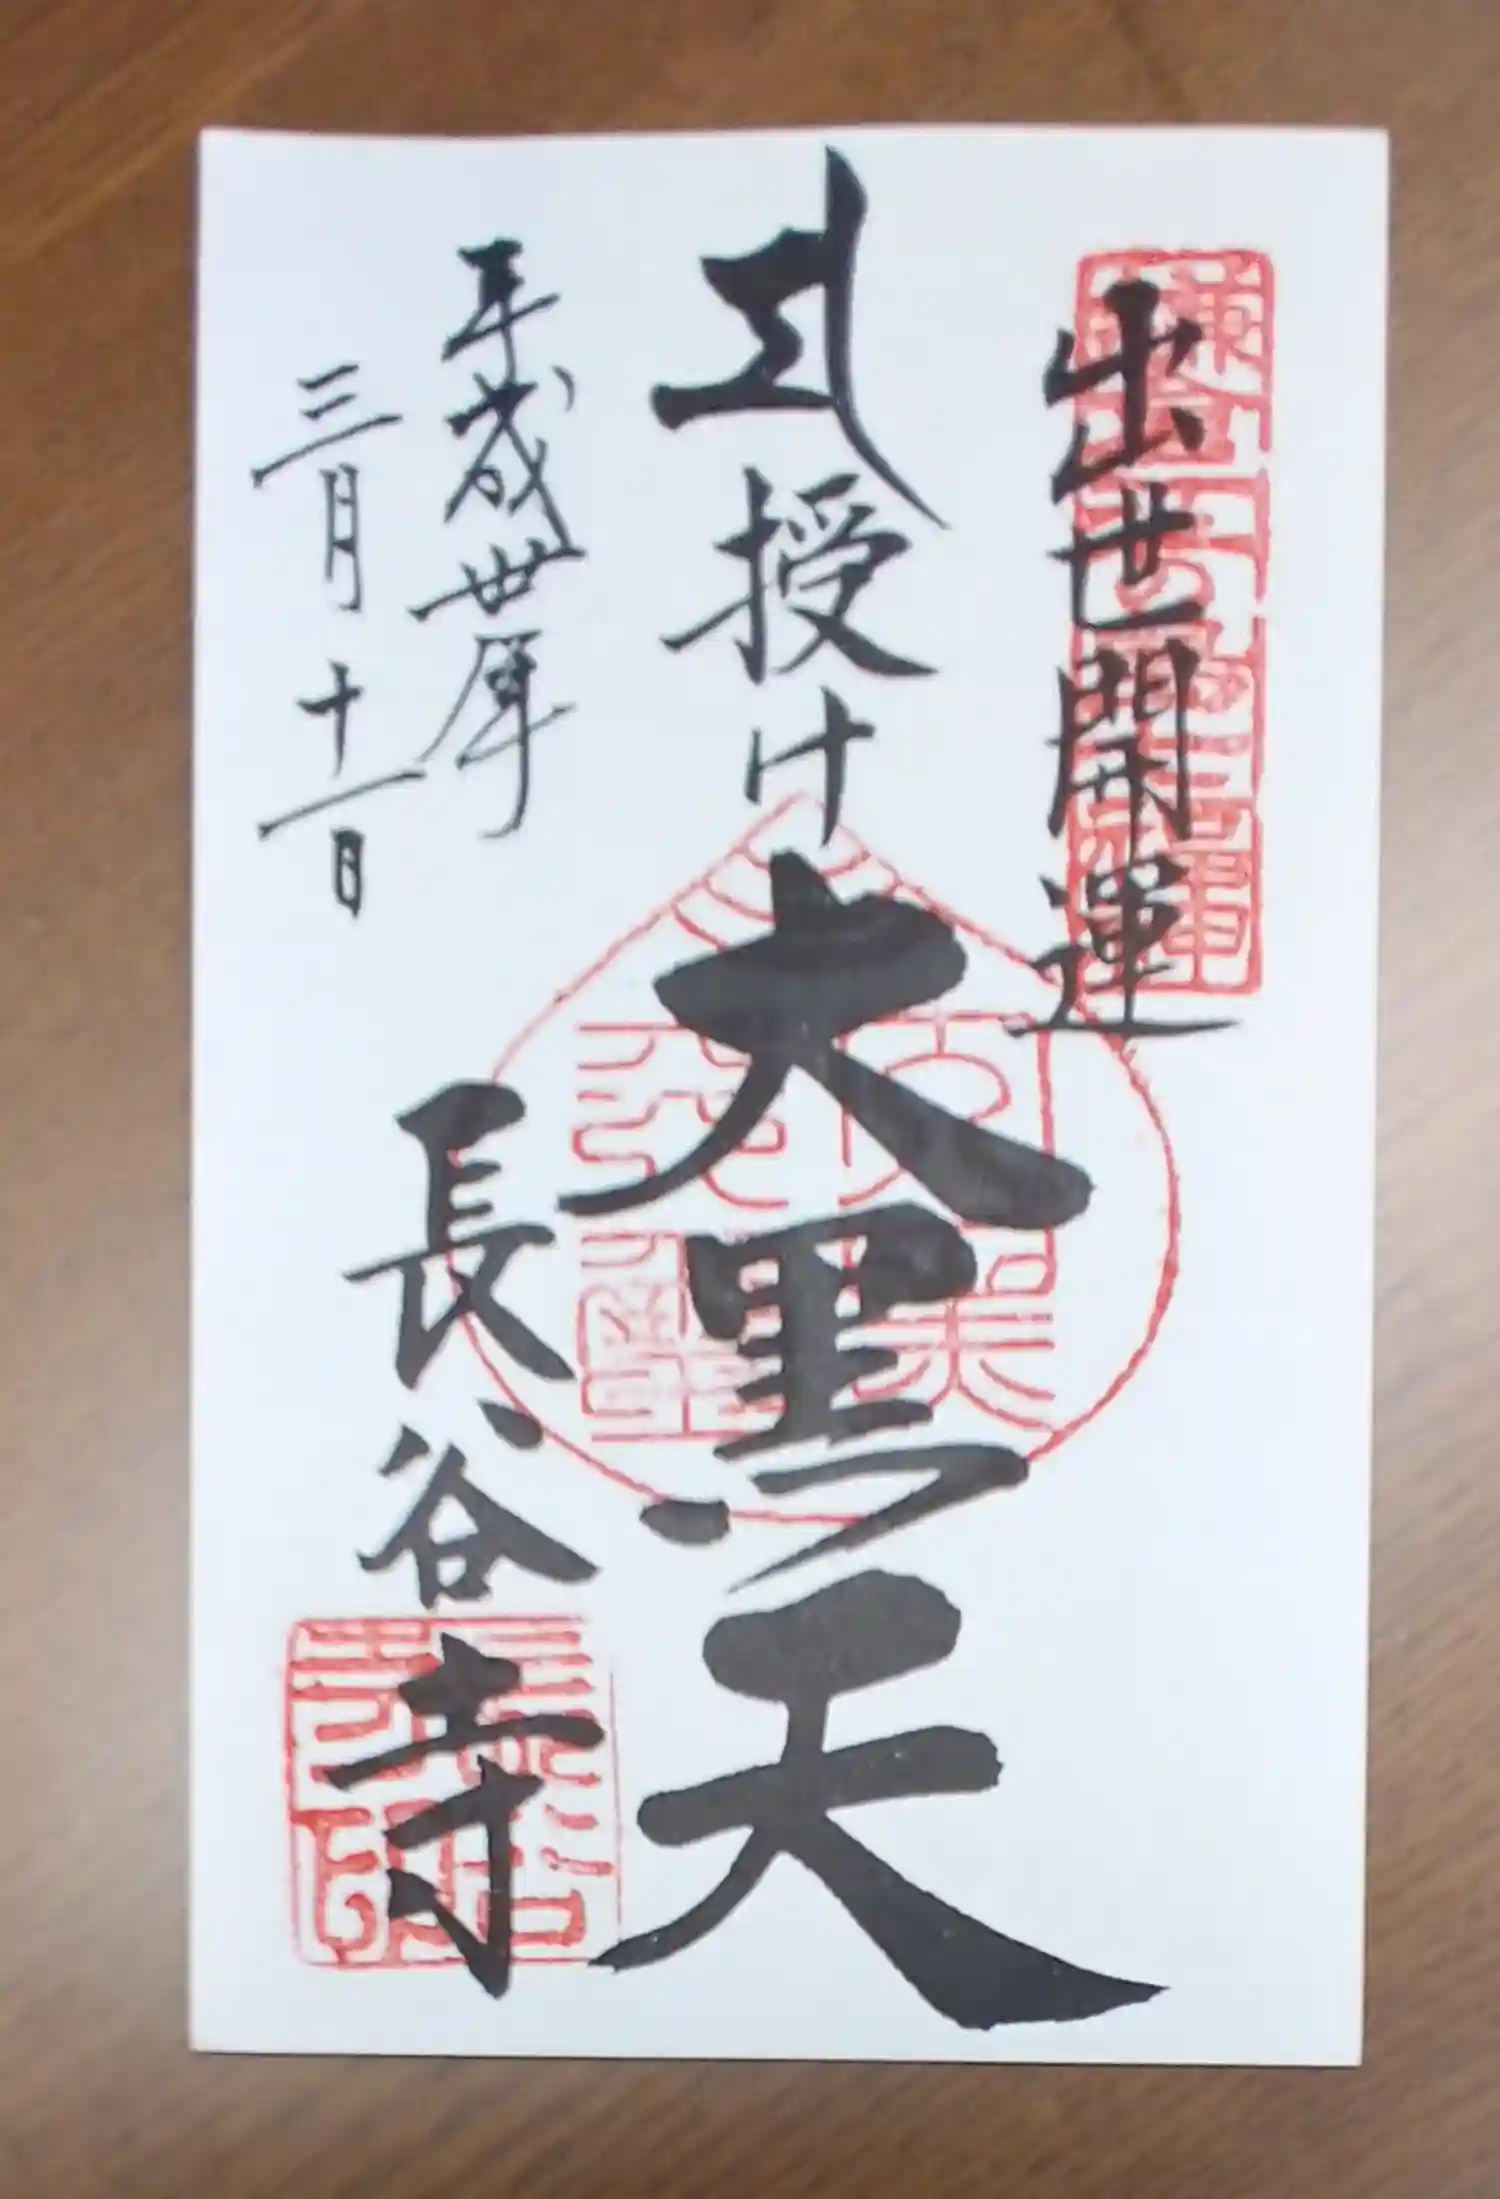 出世開運
授け大黒天
平成丗年
三月十一日
長谷寺